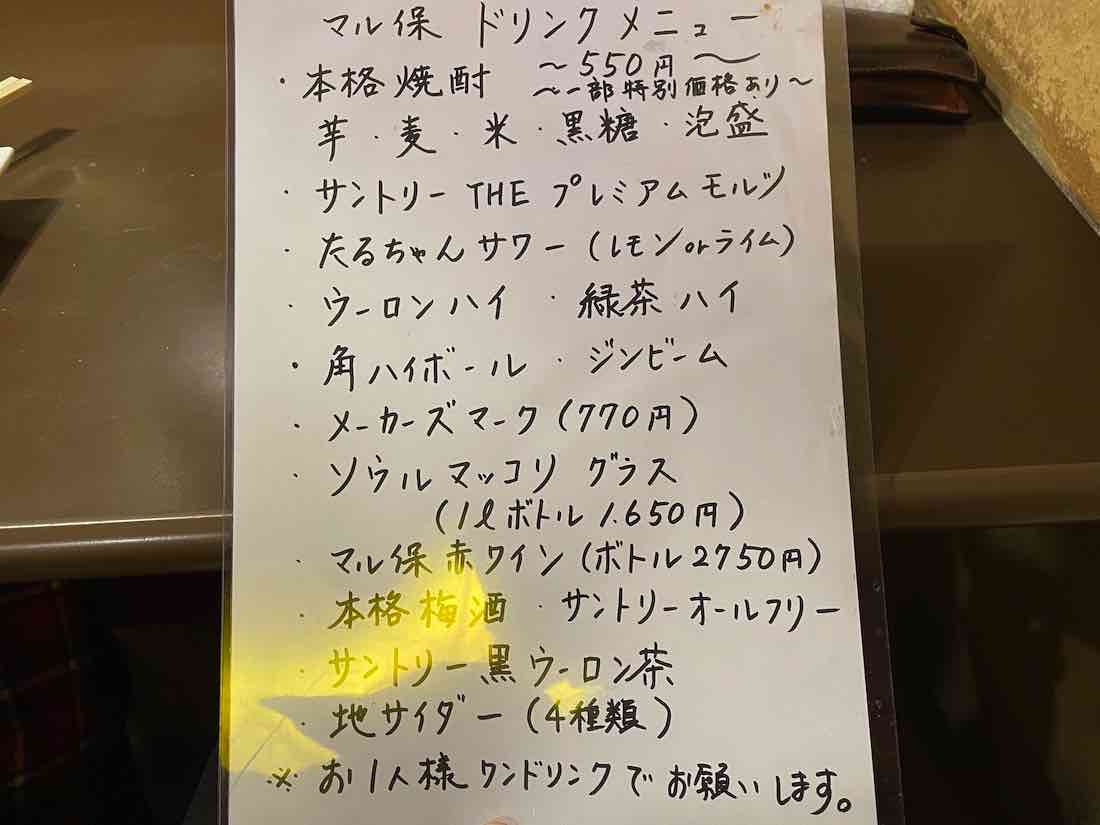 マル保 ドリンクメニュー
~550円~
・本格焼酎 ~一部特別価格あり~
芋・麦・米・黒糖・泡盛
・サントリー THE プレミアムモルツ
・たるちゃんサワー(レモンorライム)
・ウーロンハイ ・緑茶ハイ
・角ハイボール ・ジンビーム
・メーカーズマーク(770円)
・ソウルマッコリ グラス
(1ℓボトル 1.650円)
・マル保赤ワイン(ボトル2750円)
・本格梅酒 ・サントリーオールフリー
・サントリー黒ウーロン茶
・地サイダー(4種類)
※お1人様ワンドリンクでお願いします。